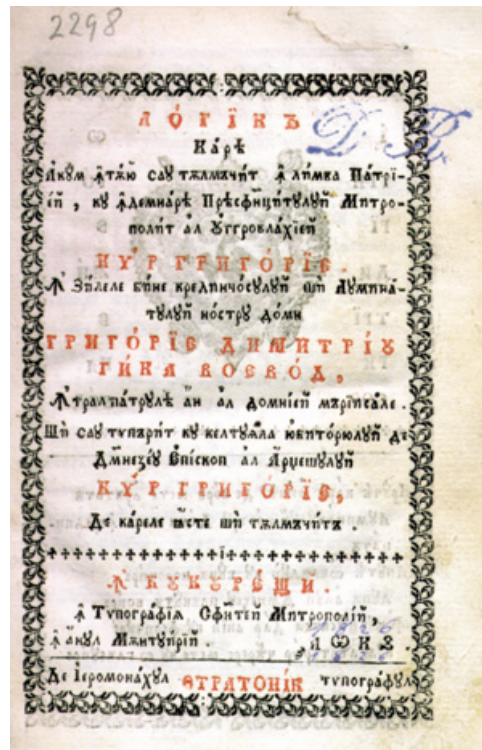 2298
ЛО́ГЇКЪ
Ка́рѣ
Акꙋм ꙟ҆тѫ́ю сау тѫлмъчи́т ꙟ҆ ли́мба Па́трї-
ей , кꙋ ꙟ҆демна́рѣ Прѣсфинци́тꙋлꙋй Митро-
поли́т ал Оуггровла́хїей
КѴ́Р ГРИГО́РЇЕ.
Ꙟ҆ Зи́леле бине крединчо́сꙋлꙋй ши Лꙋмина́-
тꙋлꙋй но́стрꙋ до́мн
ГРИГО́РЇЕ ДИМИТРІꙊ
ГИ́КА ВОЕВО́Д,
Ꙟ҆трал па́трꙋлѣ ан ал домнїей мъри́исале .
Ши сау типъри́т кꙋ келтꙋѧла юбито́рюлꙋй де
Дꙋмнезе́ꙋ Епі́скоп ал А҆рџешꙋлꙋй
КѴ́Р ГРИГО́РЇЕ,
Де ка́реле ꙗ҆сте ши тѫлмъчи́тъ .
Ꙟ҆ БꙊКꙊРЕ́ЩИ.
ꙟ҆ Типогра́фїѧ Сфи́нтей Митропо́лїй ,
ꙟ҆ а́нꙋл Мѫнтꙋи́рїй . ҂аѡкѕ .
1826
Де Іеромона́хꙋл СТРАТОНІ́К типогра́фꙋл